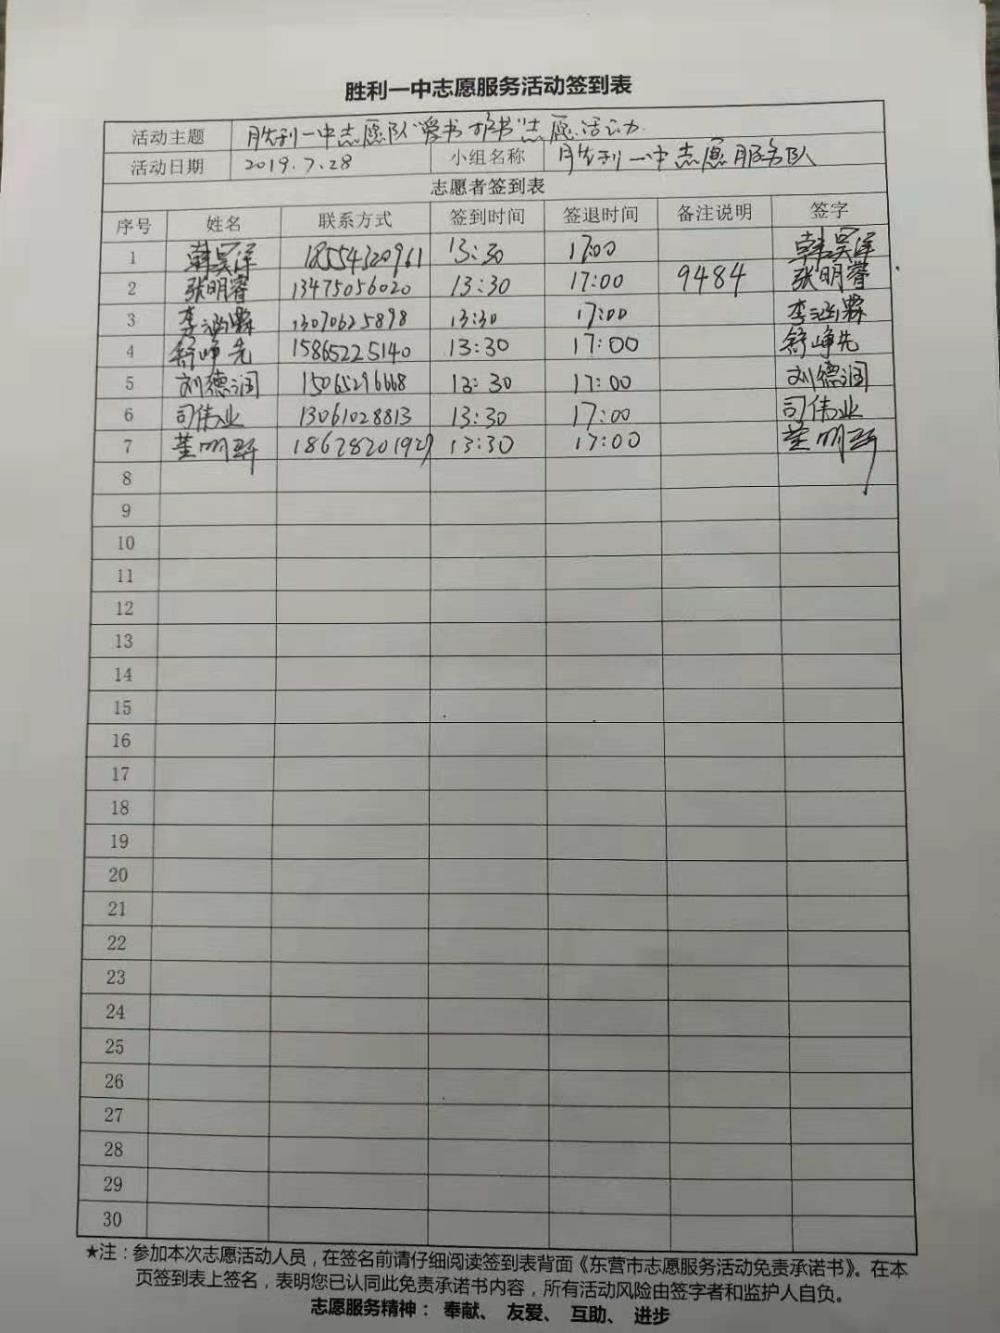 胜利一中志愿服务活动签到表
活动主题 胜利一中志愿队“爱书护书”志愿活动
活动日期 2019.7.28 小组名称 胜利一中志愿服务队
志愿者签到表
序号 姓名 联系方式 签到时间 签退时间 备注说明 签字
1 韩昊洋 18554320961 13:30 17:00 韩昊洋
2 张明睿 13475056020 13:30 17:00 9484 张明睿
3 李涵霖 13070625898 13:30 17:00 李涵霖
4 舒峥先 15865225140 13:30 17:00 舒峥先
5 刘德润 15065296668 13:30 17:00 刘德润
6 司伟业 13061028813 13:30 17:00 司伟业
7 董明 13:30 17:00 董明
8
9
10
11
12
13
14
15
16
17
18
19
20
21
22
23
24
25
26
27
28
29
30
★注：参加本次志愿活动人员，在签名前请仔细阅读签到表背面《东营市志愿服务活动免责承诺书》。在本
页签到表上签名，表明您已认同此免责承诺书内容，所有活动风险由签字者和监护人自负。
志愿服务精神： 奉献、 友爱、 互助、 进步